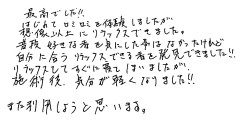 最高でした!!
はじめてロミロミを体験しましたが
想像以上にリラックスできました。
普段 好きな香を気にした事はなかったけれど
自分に合う リラックスできる香を発見できました!!
リラックスしてすぐに寝てしまいましたが、
施術後、気分が軽くなりました!!
また利用しようと思います。